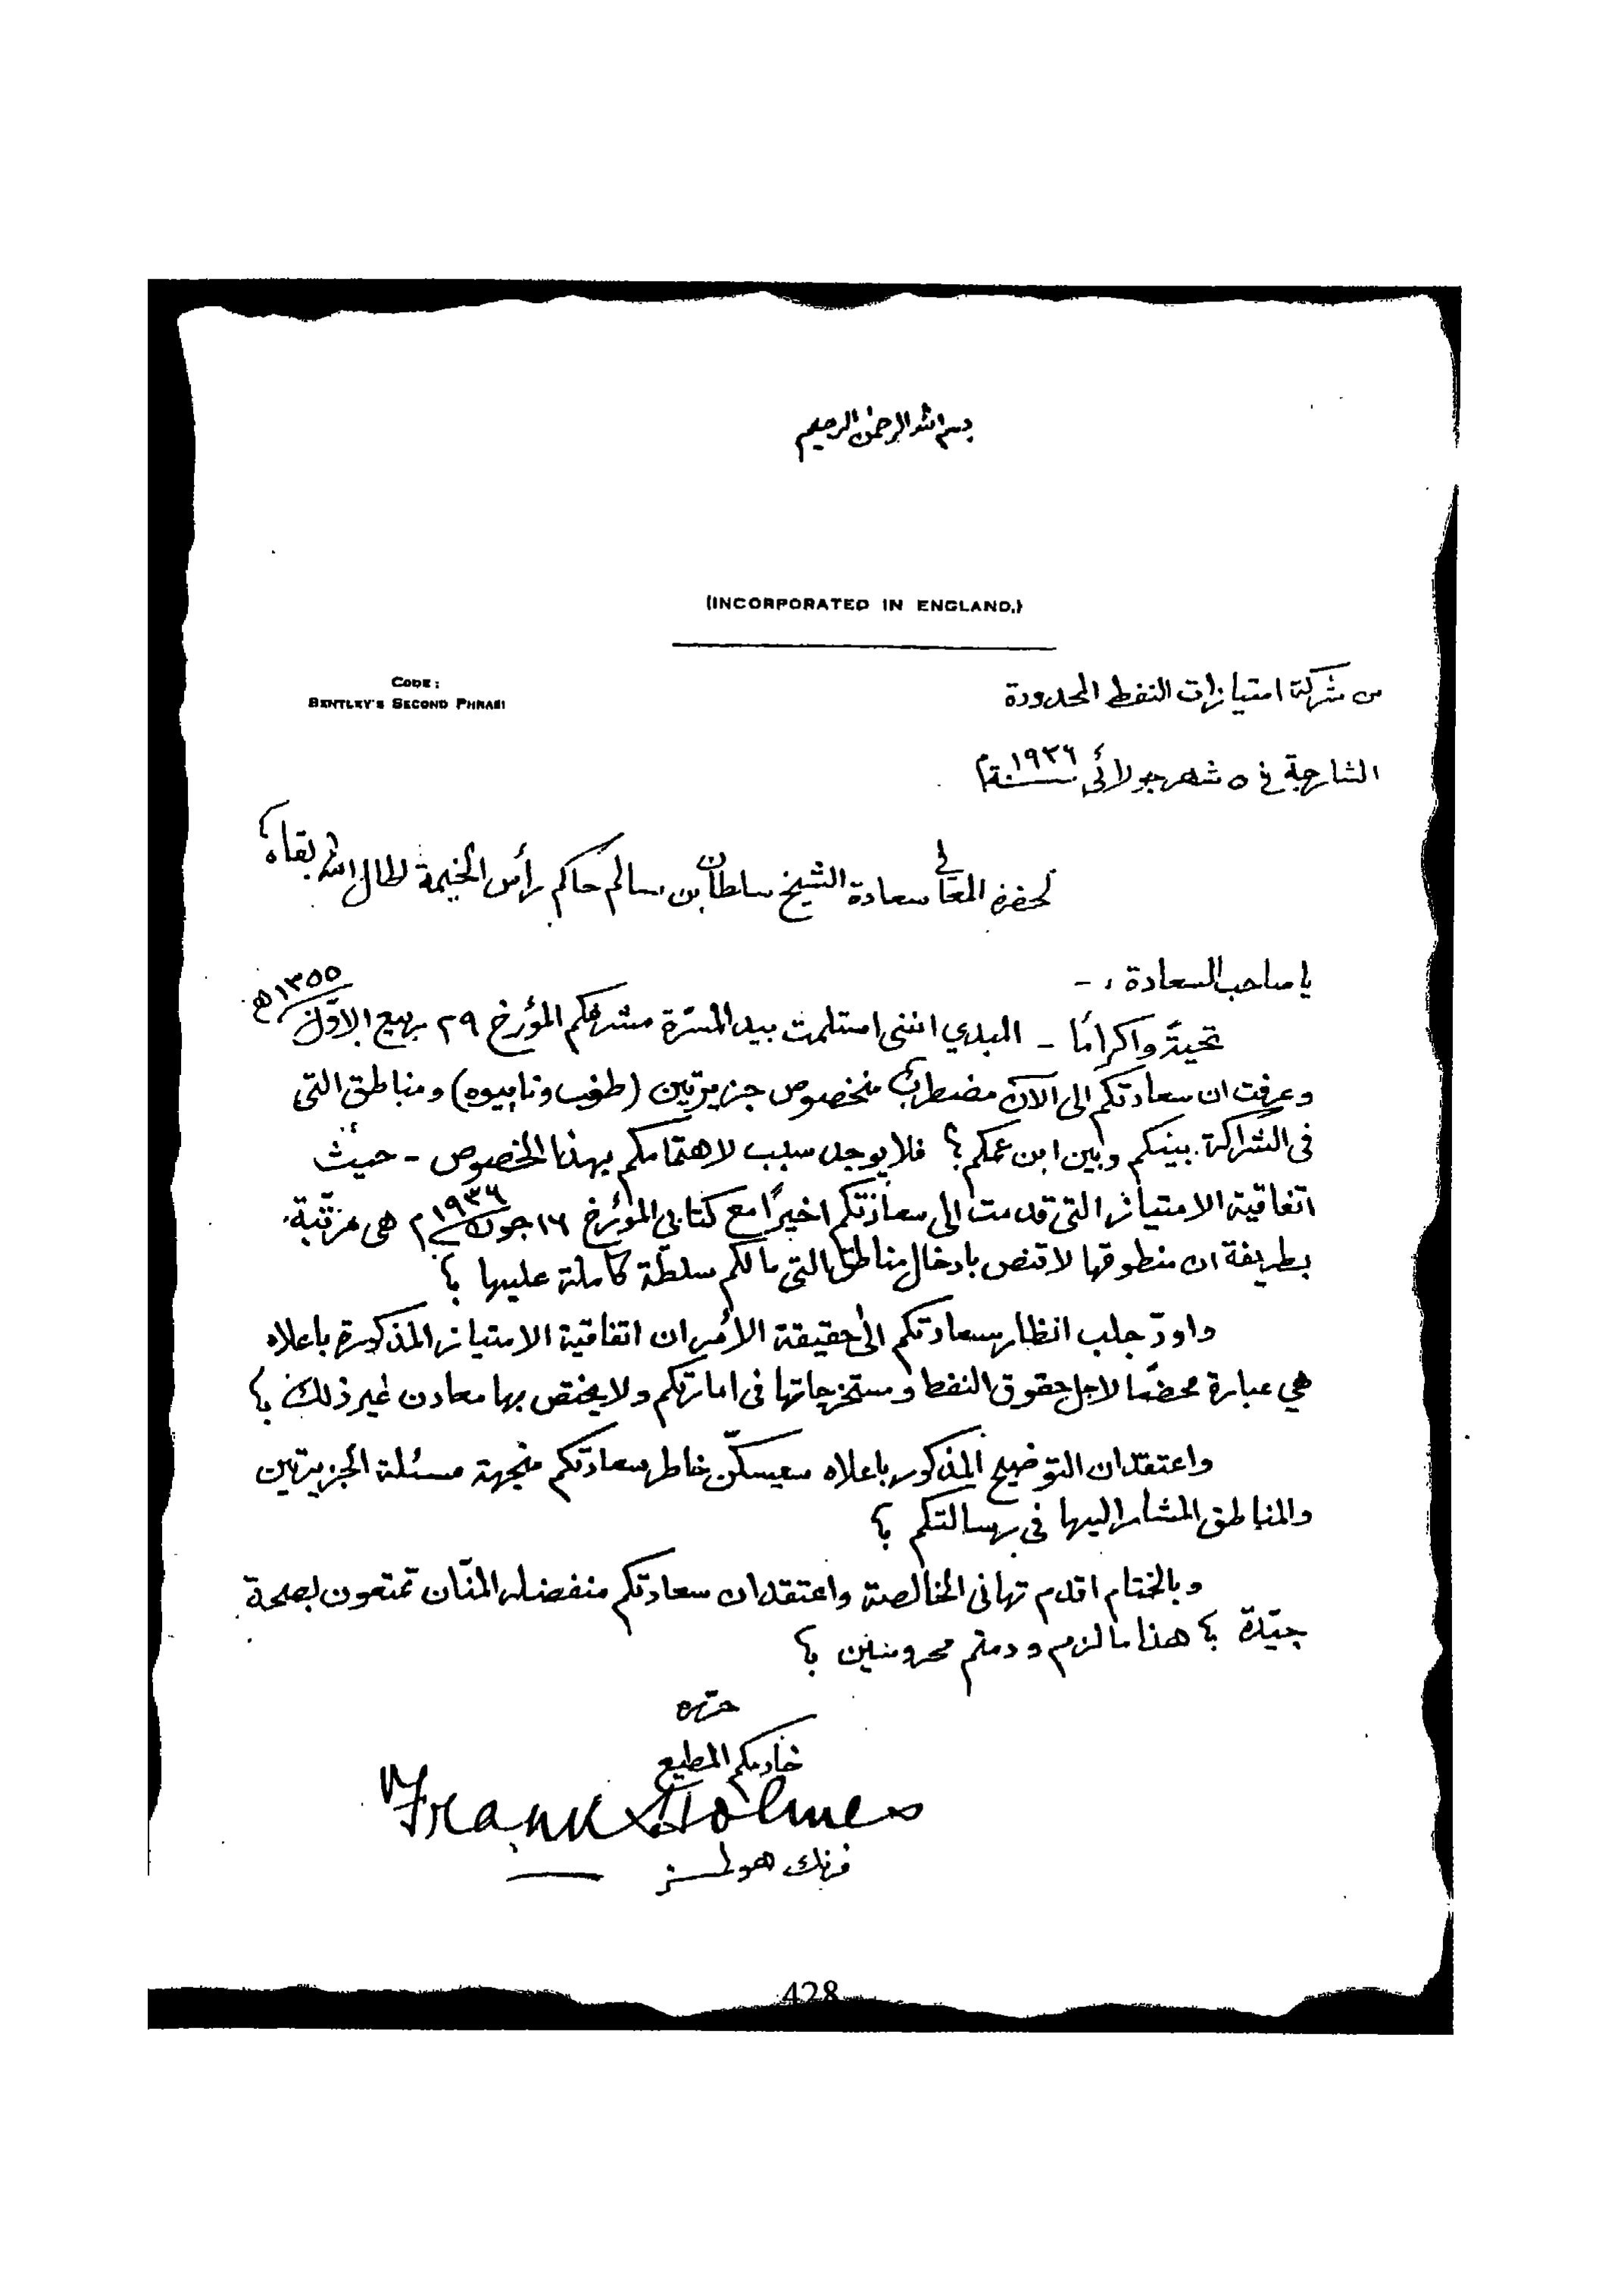 بسم الله الرحمن الرحيم
(INCORPORATED IN ENGLAND.)
CODE:
BENTLEY'S SECOND PHRASE
من شركة امتيازات النفط المحدودة
الشارجة في ٥ شهر جولائى سنة ١٩٣٦م
لحضرة المعالي سعادة الشيخ سلطان بن سالم حاكم رأس الخيمة اطال الله بقاه
يا صاحب السعادة ، -
تحيةً واكرامًا - المبدي اننى استلمت بيد المسرّة مشرفكم المؤرخ ٢٩ ربيع الاوّل ١٣٥٥ھ
وعرفت ان سعادتكم الى الآن مضطرب منخصوص جزيرتين (طنب ونابيوه) ومناطق التى
فى الشراكة بينكم وبين ابن عمكم؟ فلا يوجد سبب لاهتمامكم بهذا الخصوص - حيث
اتفاقية الامتياز التى قدمت الى سعادتكم اخيرًا مع كتابي المؤرخ ١٦ جون ١٩٣٦م هى مرتّبة
بطريقة ان منطوقها لا تنص بادخال مناطق التى مالكم سلطة كاملة عليها ؟
واودّ جلب انظار سعادتكم الى حقيقة الأمر ان اتفاقية الامتياز المذكورة باعلاه
هي عبارة محضًا لاجل حقوق النفط ومستخرجاتها فى امارتكم ولا يختص بها معادن غير ذلك ؟
واعتقد ان التوضيح المذكور باعلاه سيسكّن خاطر سعادتكم منجهة مسئلة الجزيرتين
والمناطق المشار اليها فى رسالتكم ؟
وبالختام اقدم تهانى الخالصة واعتقد ان سعادتكم منفضله المنّان تمتعون بصحة
جيّدة ؟ هذا ما لزم ودمتم محروسين ؟
حرّره
خادمكم المطيع
Frank Holmes
فرنك هولمز
428